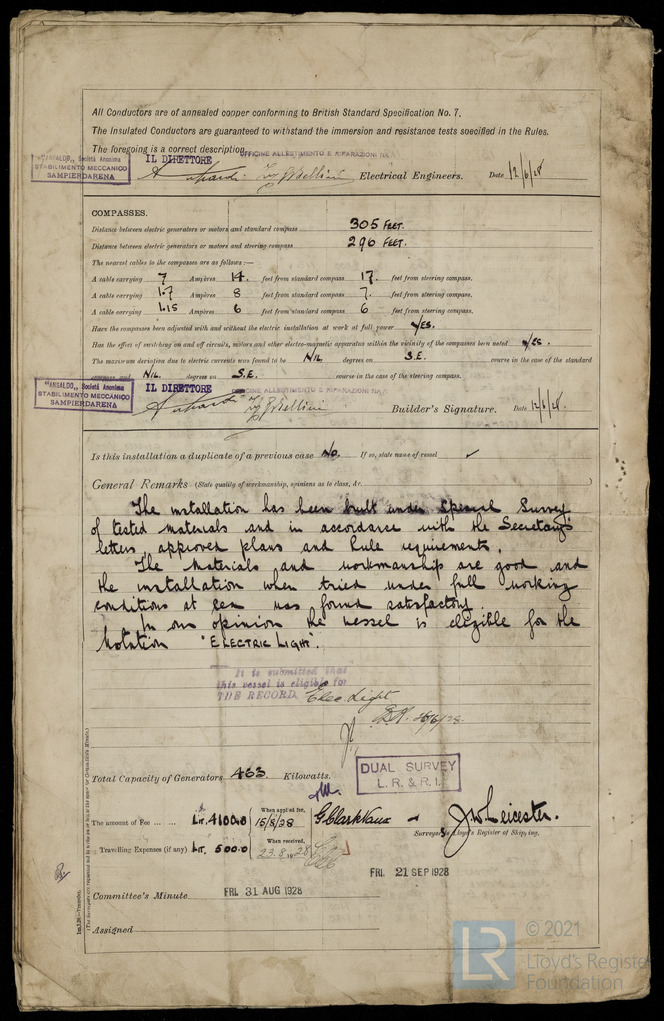 All Conductors are of annealed copper conforming to British Standard Specification No. 7.
The Insulated Conductors are guaranteed to withstand the immersion and resistance tests specified in the Rules.
The foregoing is a correct description.
"ANSALDO,, Società Anonima
STABILIMENTO MECCANICO
SAMPIERDARENA
IL DIRETTORE
OFFICINE ALLESTIMENTO E RIPARAZIONI NA
Electrical Engineers. Date 12/6/28
COMPASSES.
Distance between electric generators or motors and standard compass 305 FEET.
Distance between electric generators or motors and steering compass 296 FEET.
The nearest cables to the compasses are as follows:—
A cable carrying 7 Ampères 14. feet from standard compass 17. feet from steering compass.
A cable carrying 1.7 Ampères 8 feet from standard compass 7. feet from steering compass.
A cable carrying 1.15 Ampères 6 feet from standard compass 6 feet from steering compass.
Have the compasses been adjusted with and without the electric installation at work at full power YES.
Has the effect of switching on and off circuits, motors and other electro-magnetic apparatus within the vicinity of the compasses been noted YES.
The maximum deviation due to electric currents was found to be NIL degrees on S.E. course in the case of the standard
compass and NIL degrees on S.E. course in the case of the steering compass.
"ANSALDO,, Società Anonima
STABILIMENTO MECCANICO
SAMPIERDARENA
IL DIRETTORE
OFFICINE ALLESTIMENTO E RIPARAZIONI NA
Builder's Signature. Date 12/6/28.
Is this installation a duplicate of a previous case NO. If so, state name of vessel ✓
General Remarks (State quality of workmanship, opinions as to class, &c.)
The installation has been built under Special Survey
of tested materials and in accordance with the Secretary's
letters, approved plans and Rule requirements.
The Materials and workmanship are good and
the installation when tried under full working
conditions at sea was found satisfactory.
In our opinion the vessel is eligible for the
Notation "ELECTRIC LIGHT".
It is submitted that
this vessel is eligible for
THE RECORD. Elec Light
Total Capacity of Generators 463 Kilowatts.
DUAL SURVEY
L.R. & R.I.
The amount of Fee ... ... Lit. 4100.0 When applied for, 15/8/28
G Clark Vaux & J W Leicester.
Surveyors Lloyd's Register of Shipping.
Travelling Expenses (if any) Lit. 500.0 When received, 23.8.1928
FRI. 21 SEP 1928
Committee's Minute FRI. 31 AUG 1928
Assigned
© 2021
LR
Lloyd's Register
Foundation